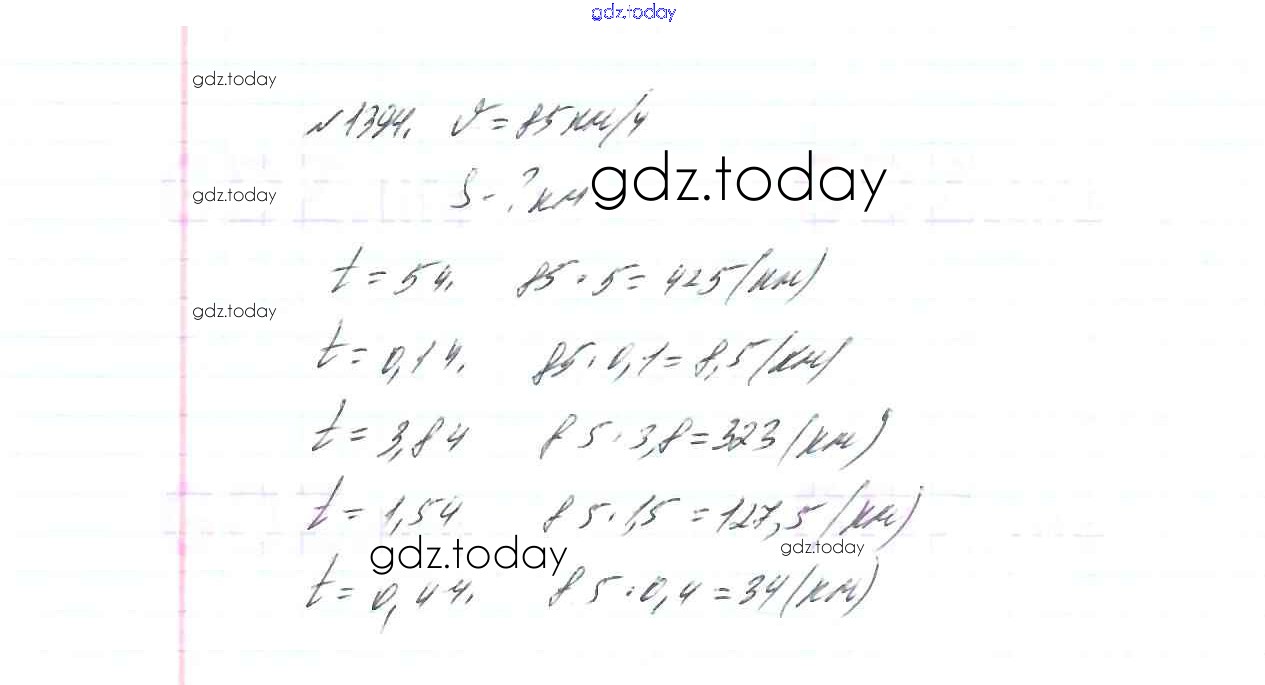 gdz.today
gdz.today
№1394. v = 85 км/ч
gdz.today
S - ? км
gdz.today
t = 5 ч. 85 · 5 = 425 (км)
gdz.today
t = 0,1 ч. 85 · 0,1 = 8,5 (км)
t = 3,8 ч 85 · 3,8 = 323 (км)
t = 1,5 ч 85 · 1,5 = 127,5 (км)
gdz.today
gdz.today
t = 0,4 ч. 85 · 0,4 = 34 (км)